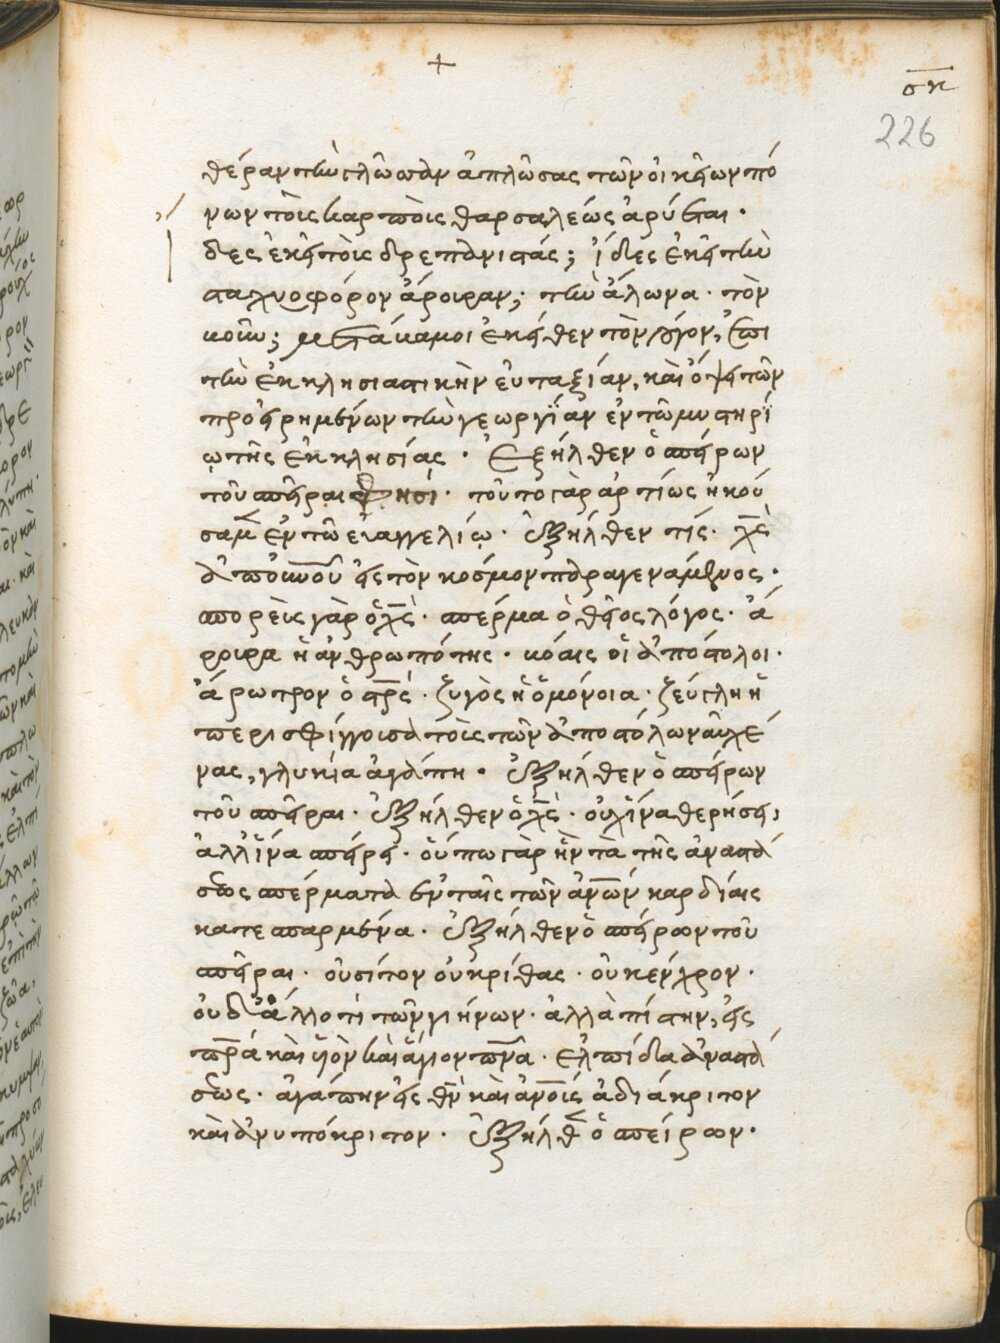 +
σκ
226
θέραν τὴν γλῶσσαν ἁπλώσας τῶν οἰκείων πό
νων τοῖς καρποῖς θαρσαλέως ἀρύεται·
ἴδες ἐκεῖ τοὺς δρεπανιστάς; ἴδες ἐκεῖ τὴν
σταχυοφόρον ἄρουραν; τὴν ἅλωνα· τὸν
κοιν; μετά καμοι ἐκεῖθεν τὸν λόγον, ἐπι
τὴν ἐκκλησιαστικὴν εὐταξίαν, καὶ ὄψει τῶν
προειρημένων τὴν γεωργίαν ἐν τῶ μυστηρί
ῳ τῆς ἐκκλησίας· Ἐξῆλθεν ὁ σπείρων
τοῦ σπεῖραι φησί· τοῦτο γὰρ ἀρτίως ἠκού
σαμεν ἐν τῶ εὐαγγελίῳ· ἐξῆλθεν τίς· χς
ἀπ οὐνοῦ εἰς τὸν κόσμον παραγενάμενος·
σπορεὺς γὰρ ὁ χς· σπέρμα ὁ θεῖος λόγος· ἄ
ρουρα ἡ ἀνθρωπότης· βόες οἱ ἀπόστολοι·
ἄρωτρον ὁ στρς· ζυγὸς ἡ ὁμόνοια· ζεύγλη ἡ
περισφίγγουσα τοῖς τῶν ἀποστόλων αὐχέ
νας, γλυκεία ἀγάπη· ἐξῆλθεν ὁ σπείρων
τοῦ σπεῖραι· ἐξῆλθεν ὁ χς· οὐχ ἵνα θερήσει,
ἀλλ ἵνα σπείρει· οὔπω γὰρ ἦν τὰ τῆς ἀναστά
σεως σπέρματα ἐν ταῖς τῶν ἀνων καρδίαις
κατεσπαρμένα· ἐξῆλθεν ὁ σπείρων τοῦ
σπεῖραι· οὐ σίτον οὐ κρίθας· οὐ κέγχρον·
οὐδ ἄλλο τι τῶν γιήνων· ἀλλὰ πίστην, εἰς
πρα καὶ υἱὸν καὶ ἅγιον πνα· ἐλπίδα ἀναστά
σεως· ἀγάπην εἰς θν καὶ ἀνοις ἀδιάκριτον
καὶ ἀνυπόκριτον· ἐξῆλθεν ὁ σπείρων·